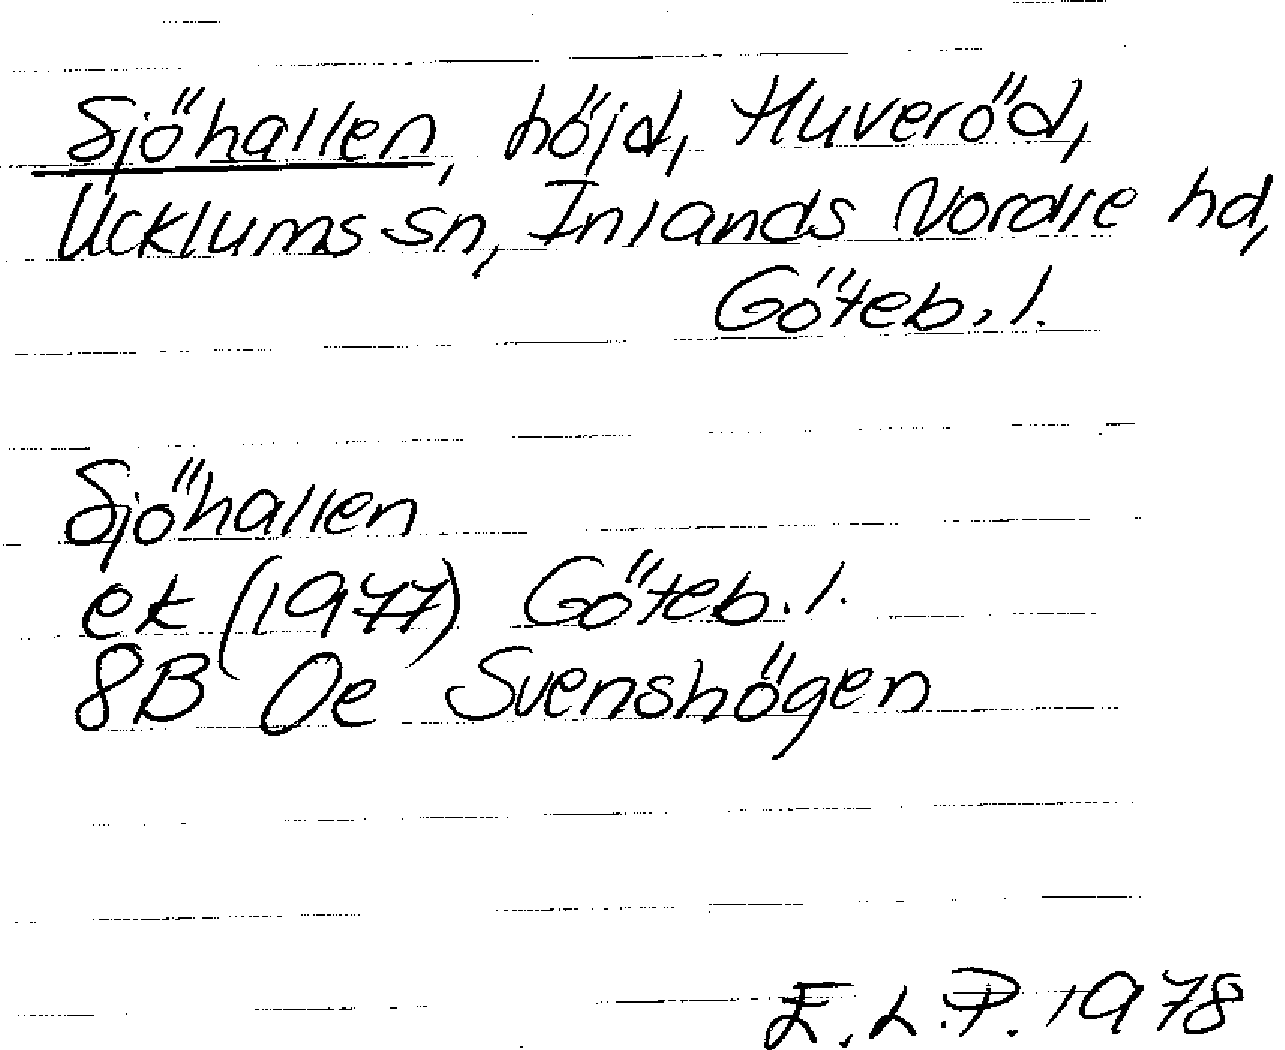 Sjöhallen, höjd, Huveröd,
Ucklums sn, Inlands Nordre hd,
Göteb. l.
Sjöhallen
ek (1977) Göteb. l.
8B Oe Svenshögen
E. L. P. 1978